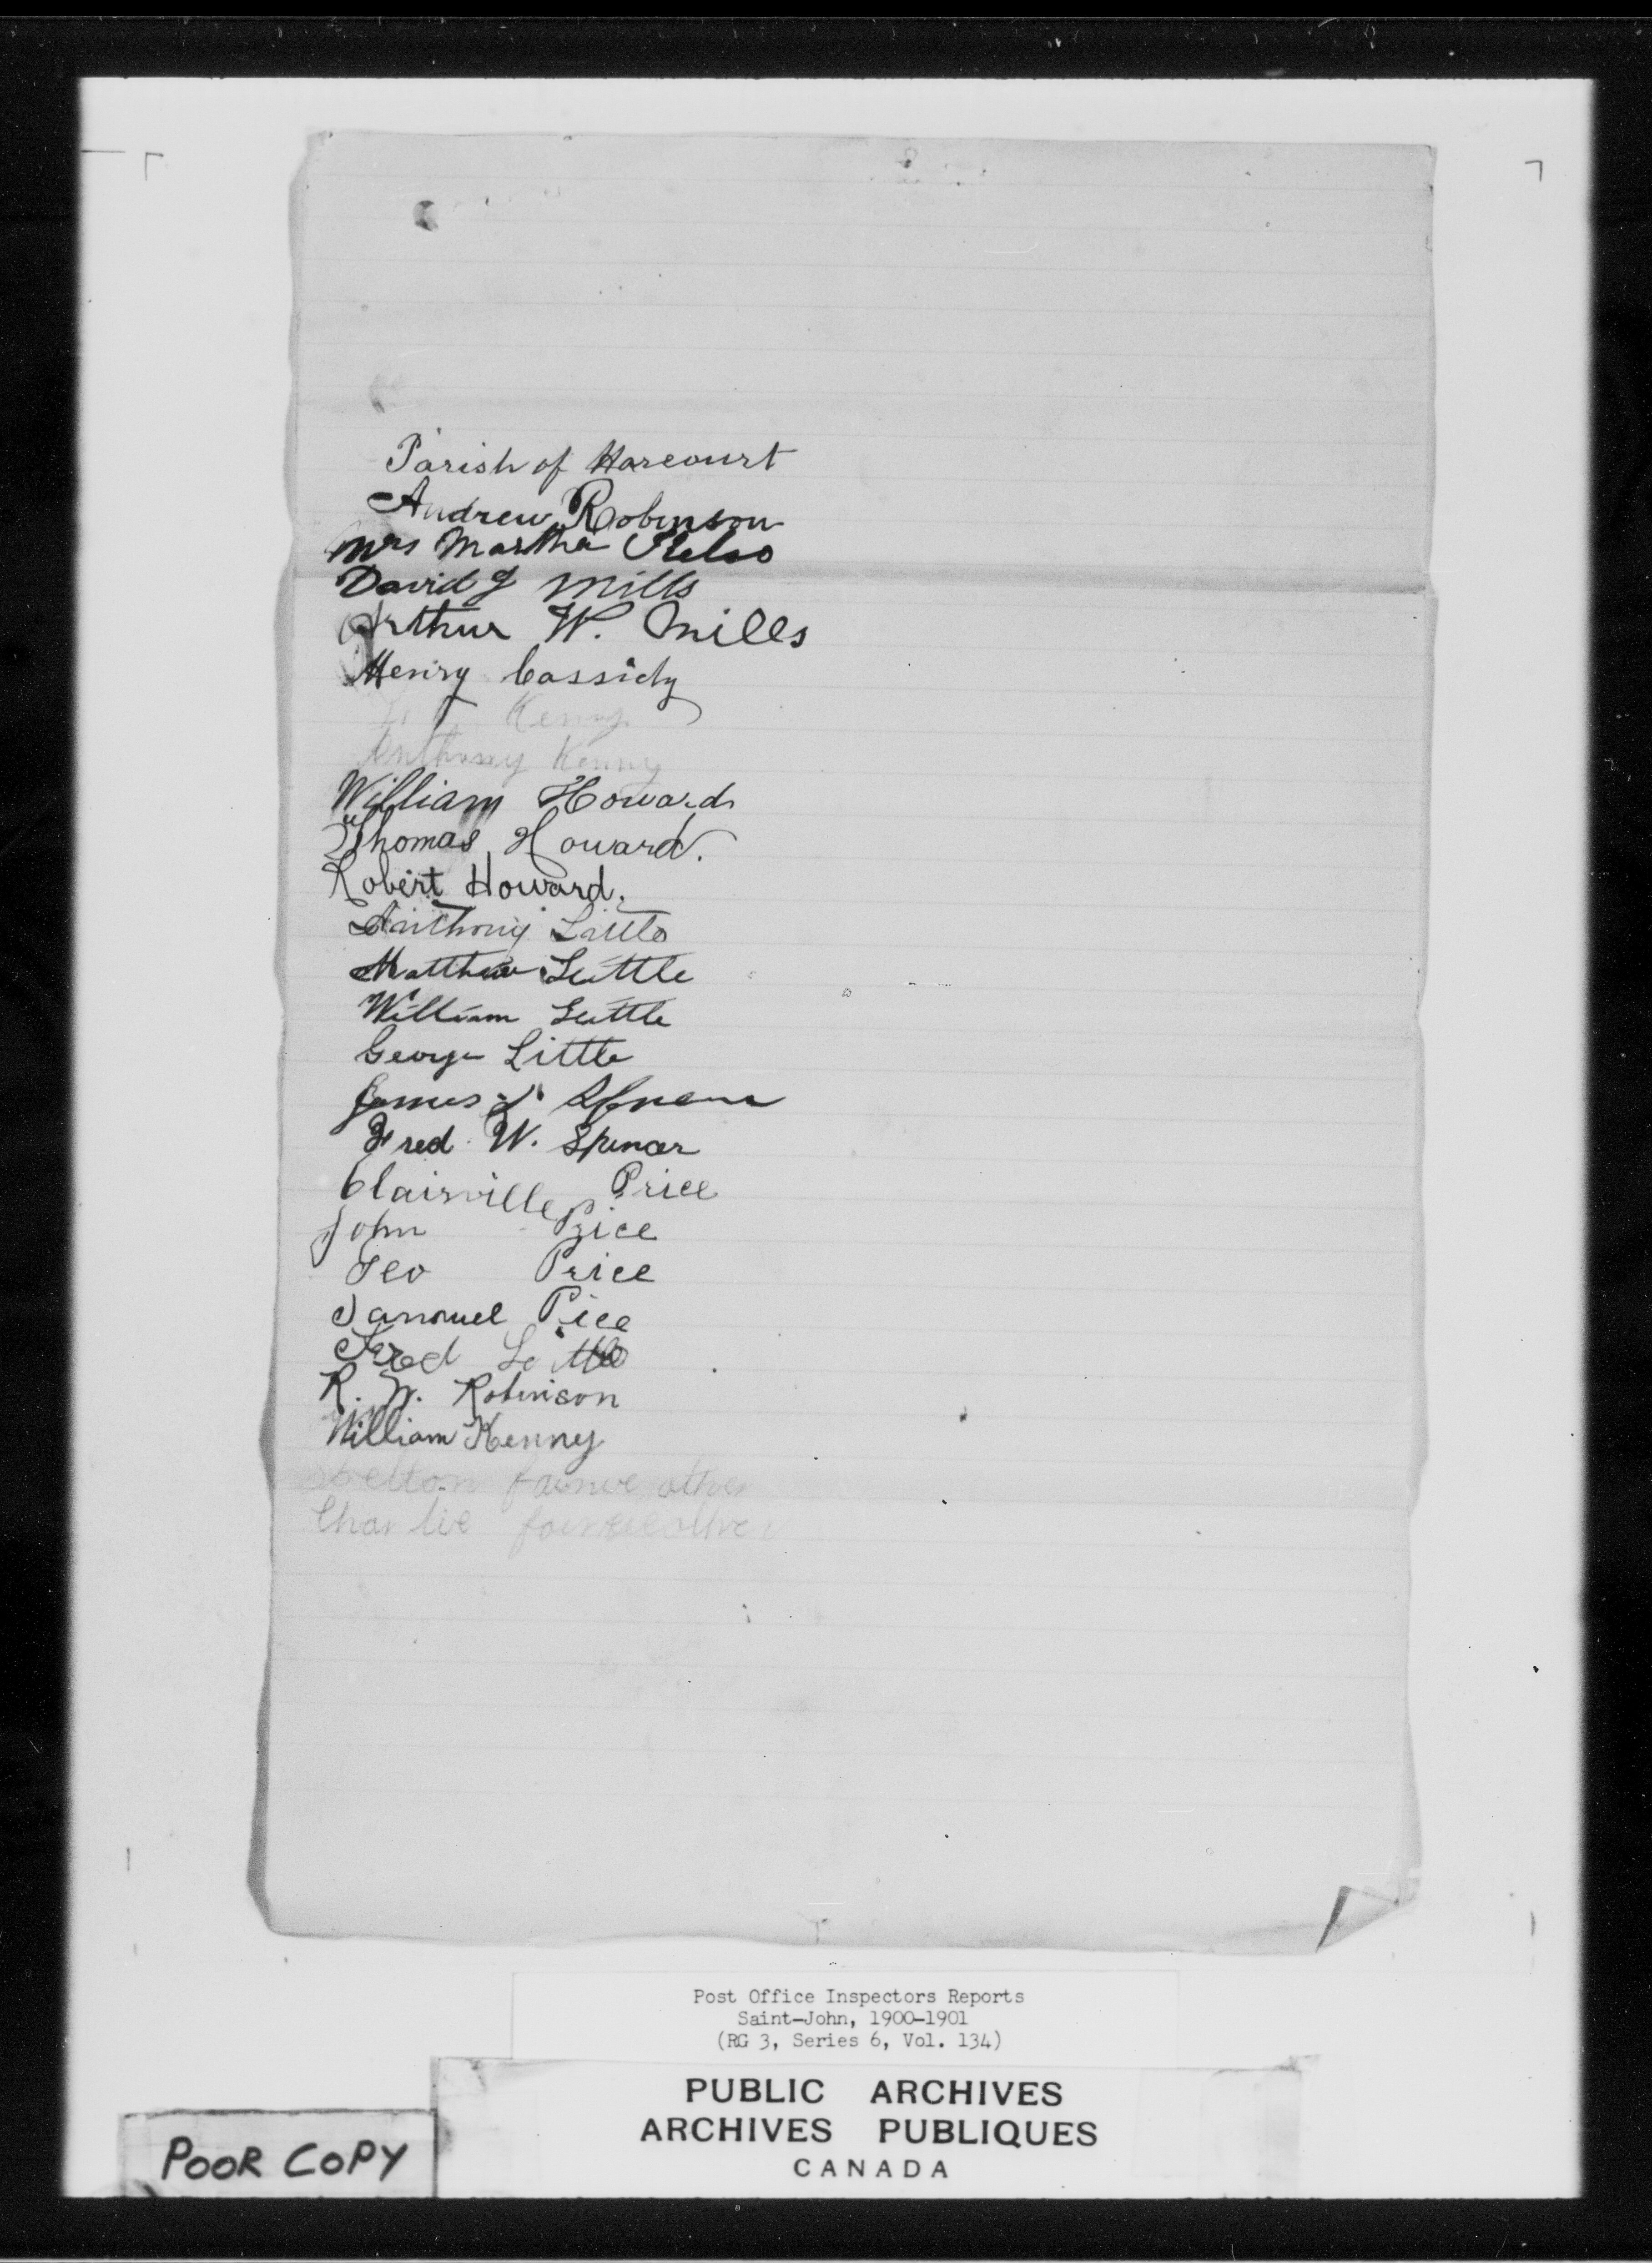 Parish of Harcourt
Andrew Robinson
Mrs Martha Kelso
David J Mills
Arthur W. Mills
Henry Cassidy
Kenny
Anthony Kenny
William Howard
Thomas Howard.
Robert Howard.
Anthony Little
Matthew Little
William Little
George Little
James
Fred W. Spencer
Clairville Price
John Price
Geo Price
Samuel Pice
Fred Little
R. W. Robinson
William Kenny
fairweather
Charlie fairweather
Post Office Inspectors Reports
Saint-John, 1900-1901
(RG 3, Series 6, Vol. 134)
PUBLIC ARCHIVES
ARCHIVES PUBLIQUES
CANADA
POOR COPY